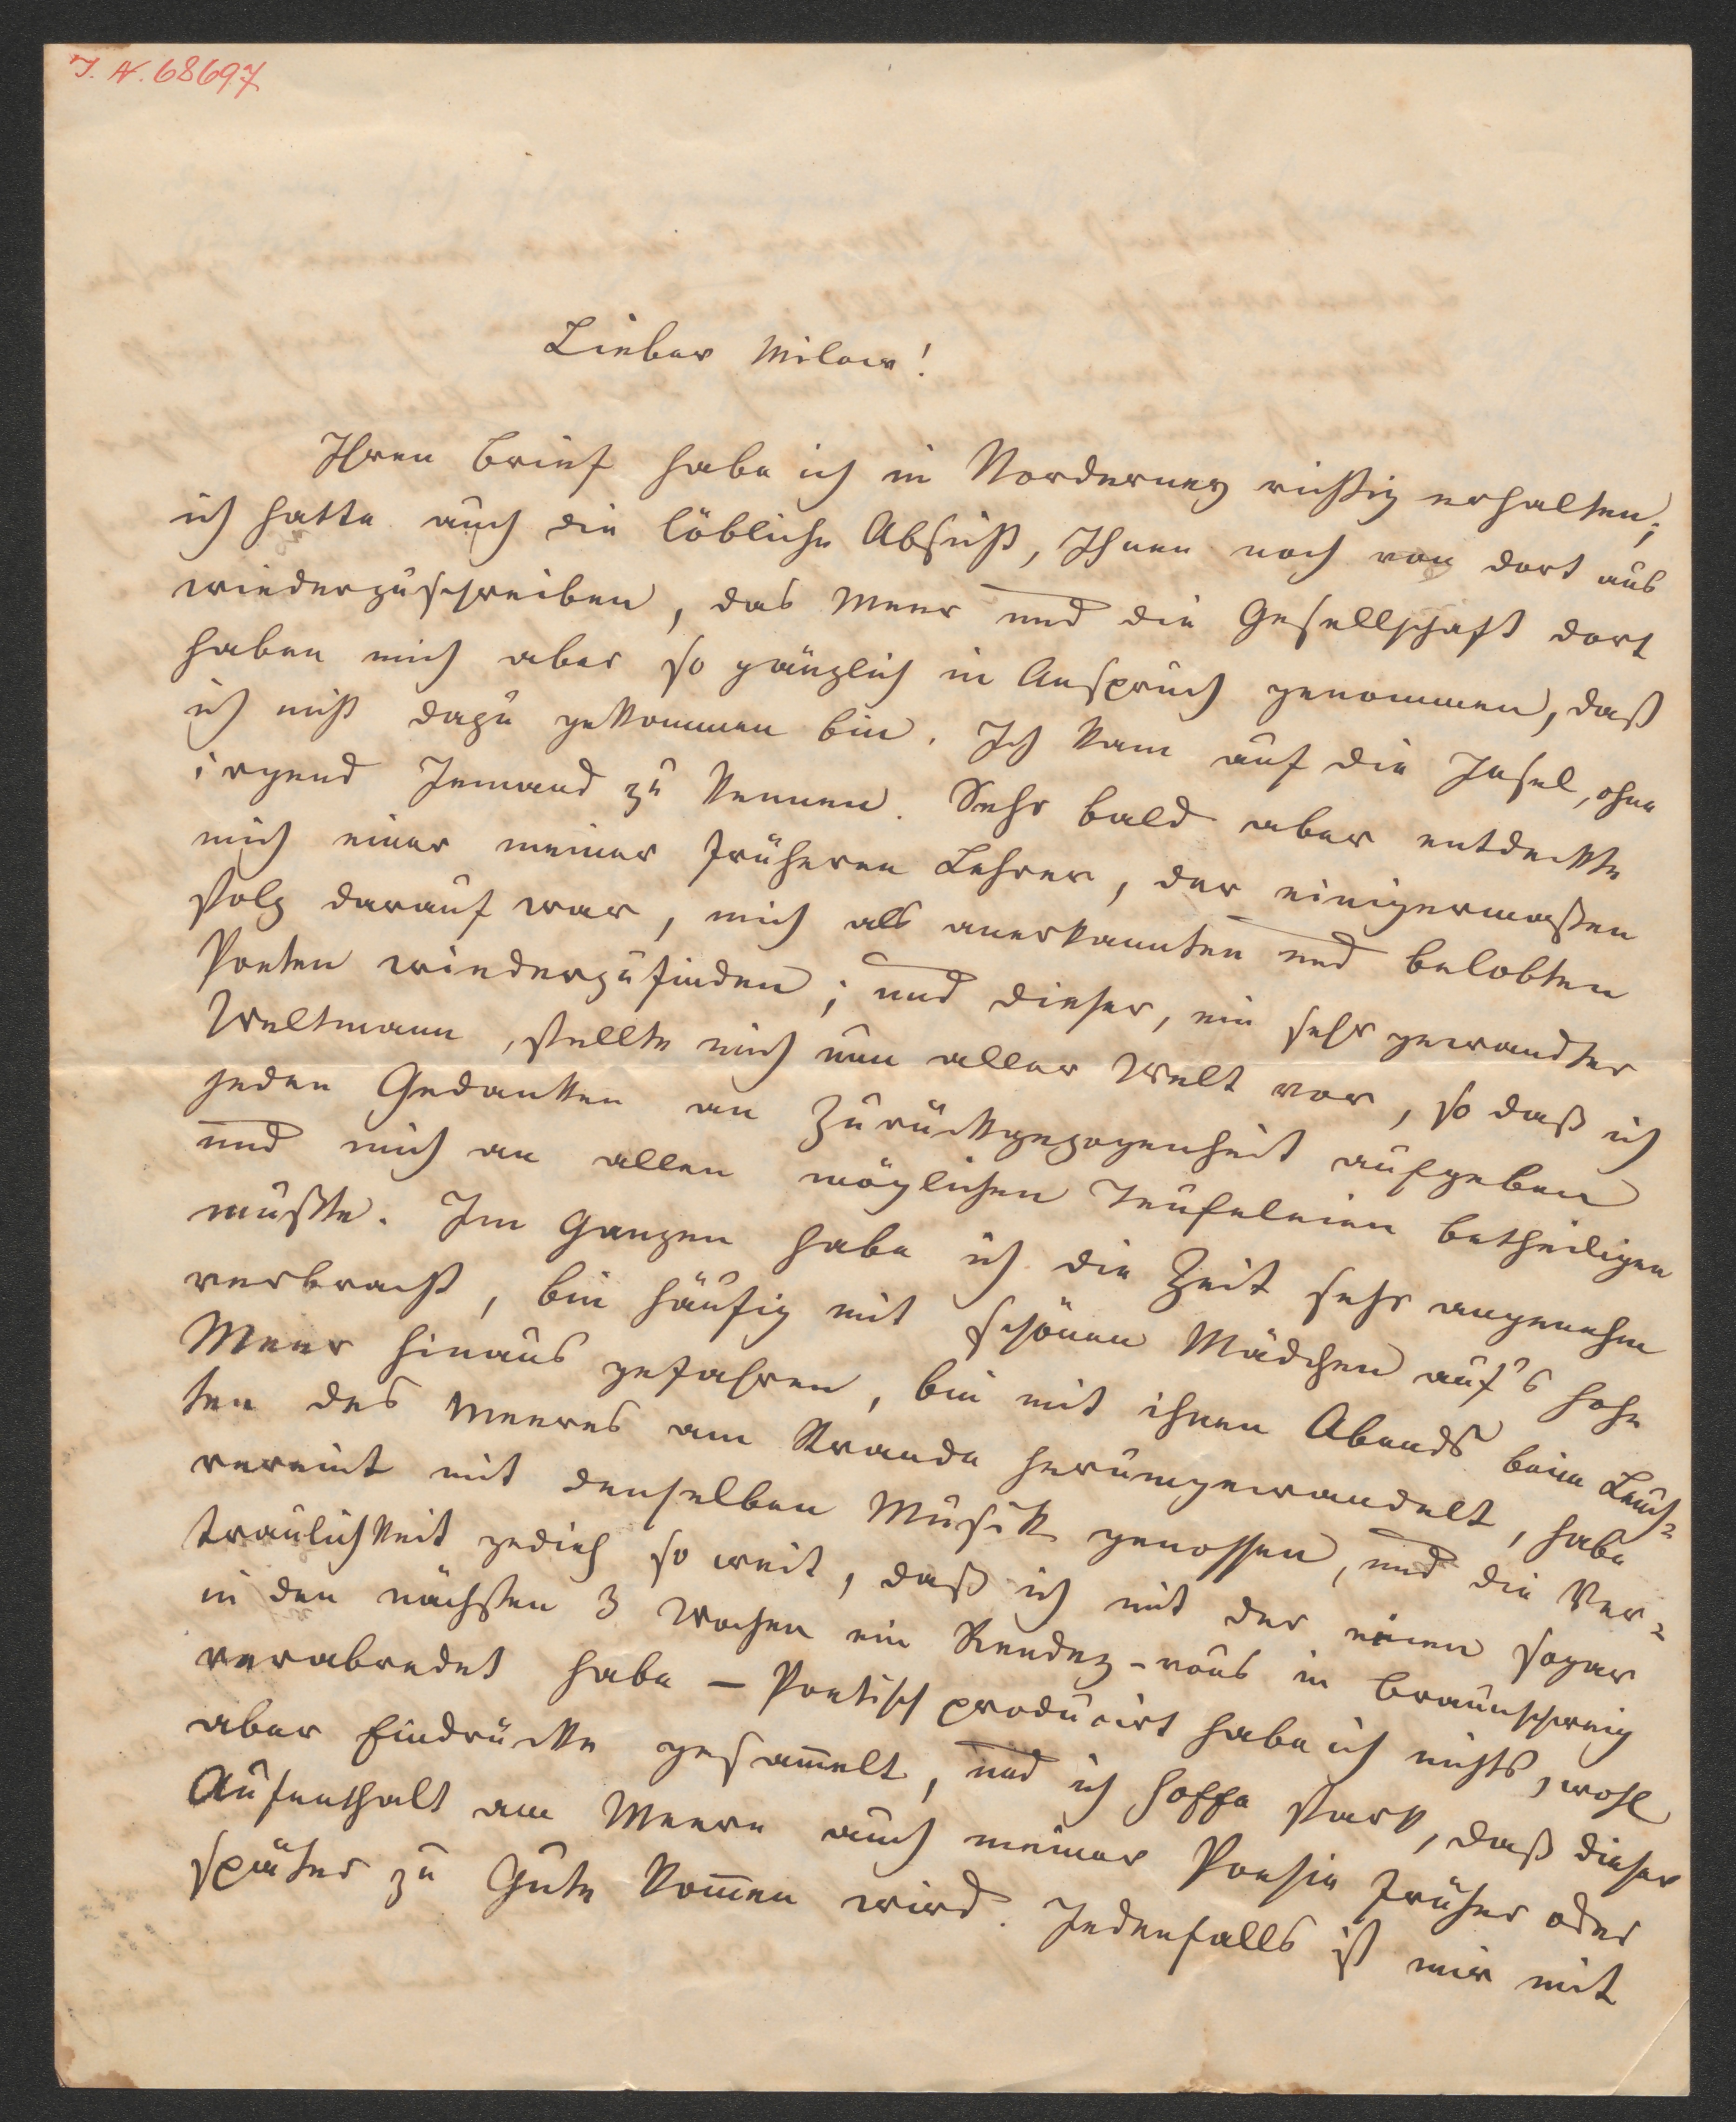 J. N. 68697
Lieber Milow!
Ihren Brief habe ich in Norderney richtig erhalten;
ich hatte auch die löbliche Absicht, Ihnen noch von dort aus
wiederzuschreiben, das Meer und die Gesellschaft dort
haben mich aber so gänzlich in Anspruch genommen, daß
ich nicht dazu gekommen bin. Ich kam auf die Insel, ohne
irgend Jemand zu kennen. Sehr bald aber entdeckte
mich einer meiner früheren Lehrer, der einigermaßen
stolz darauf war, mich als anerkannten und belobten
Poeten wiederzufinden; und dieser, ein sehr gewandter
Weltmann, stellte mich nun aller Welt vor, so daß ich
jeden Gedanken an Zurückgezogenheit aufgeben
und mich an allen möglichen Teufeleien betheiligen
mußte. Im Ganzen habe ich die Zeit sehr angenehm
verbracht, bin häufig mit schönen Mädchen auf's hohe
Meer hinaus gefahren, bin mit ihnen Abends beim Leuch-
ten des Meeres am Strande herumgewandelt, habe
vereint mit denselben Musik genossen, und die Ver-
traulichkeit gedieh so weit, daß ich mit der einen sogar
in den nächsten 3 Wochen ein Rendez-vous in Braunschweig
verabredet habe — Poetisch producirt habe ich nichts, wohl
aber Eindrücke gesam̅elt, und ich hoffe stark, daß dieser
Aufenthalt am Meere auch meiner Poesie früher oder
später zu Gute kom̅en wird. Jedenfalls ist mir mit